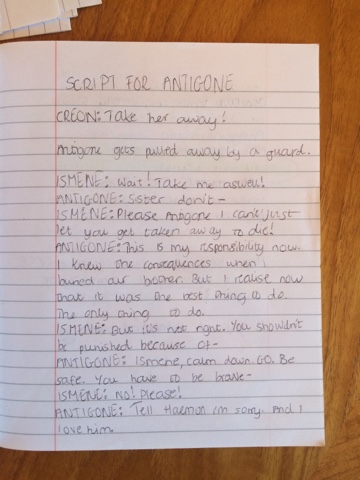 SCRIPT FOR ANTIGONE
CREON: Take her away!
Antigone gets pulled away by a guard.
ISMENE: Wait! Take me aswell!
ANTIGONE: Sister don't -
ISMENE: Please Antigone I can't just
let you get taken away to die!
ANTIGONE: This is my responsibility now.
I knew the consequences when I
buried our brother. But I realise now
that it was the best thing to do.
The only thing to do.
ISMENE: But it's not right. You shouldn't
be punished because of -
ANTIGONE: Ismene, calm down. GO. Be
safe. You have to be brave -
ISMENE: NO! Please!
ANTIGONE: Tell Haemon I'm sorry. And I
love him.